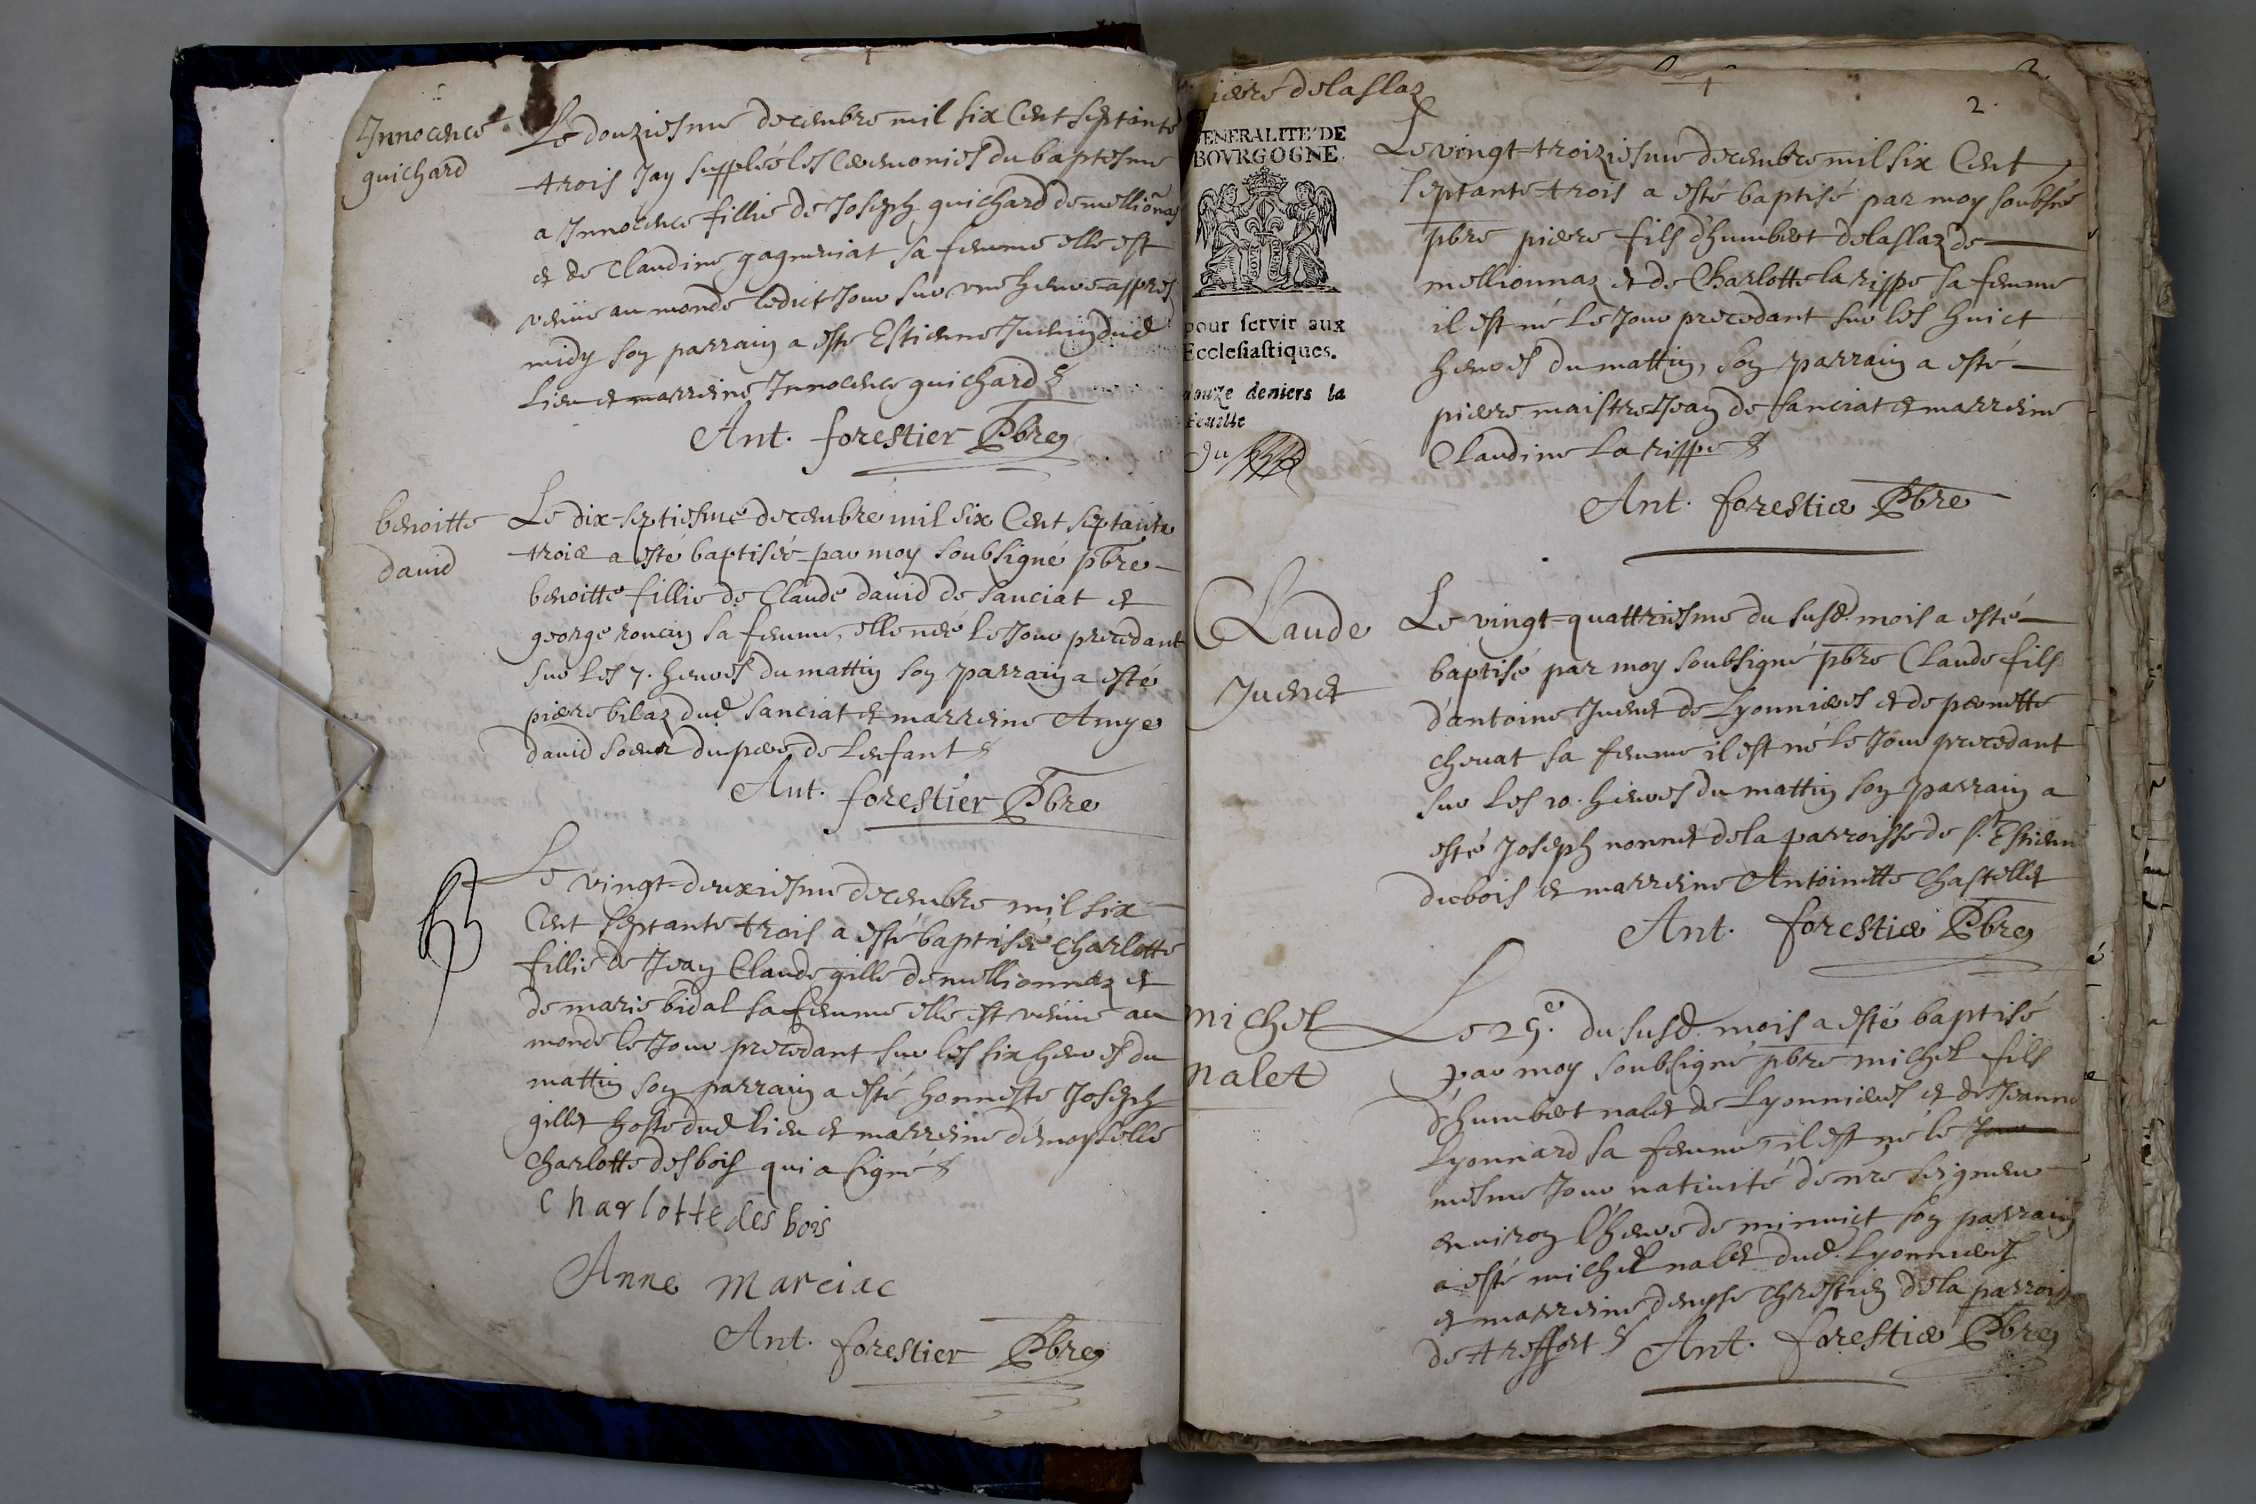 Innocence
guichard
Le douziesme decembre mil six Cent septante
trois Jay suppléé les Ceremonies du baptesme
a Innocence fillie de Joseph guichard de mellionas
et de Claudine gagneriat sa femme elle est
venüe au monde ledict Jour sur une heure appres
midy son parrain a esté Estienne Juenin dud
lieu et marreine Innocence guichard
Ant. forestier Pbre
benoitte
david
Le dix-septiesme decembre mil six Cent septante
trois a esté baptisée par moy soubsigné pbre
benoitte fillie de Claude david de sanciat et
george roncin sa femme, elle née le Jour precedant
sur les 7. heures du mattin son parrain a esté
piere bilaz dud sanciat et marreine Amye
david soeur du pere de Lenfant
Ant. forestier Pbre
Le vingt-deuxiesme decembre mil six
Cent septante trois a esté baptisée Charlotte
fillie de Jean Claude gille de mellionnaz et
de marie bidal sa femme elle est venüe au
monde le Jour precedant sur les six heures du
mattin son parrain a esté honneste Joseph
gillet hoste dud lieu et marreine demoyselle
Charlotte desbois qui a signé
Charlotte des bois
Anne Marciac
Ant. forestier Pbre
piere delaslaz
GENERALITE DE
BOVRGOGNE
pour servir aux
Ecclesiastiques.
douze deniers la
feuille
2.
Le vingt-troiziesme decembre mil six Cent
septante trois a esté baptisé par moy soubsné
pbre piere fils d'humbert delaslaz de
mellionnaz et de Charlotte la rippe sa femme
il est né le Jour precedant sur les huict
heures du mattin, son parrain a esté
piere maistre Jean de sanciat et marreine
Claudine La rippe
Ant. forestier Pbre
Claude
Juenet
Le vingt-quattriesme du susd. mois a esté
baptisé par moy soubsigné pbre Claude fils
d'antoine Juenet de Lyonnieres et de pernette
chevat sa femme il est né le Jour precedant
sur les 10. heures du mattin son parrain a
esté Joseph nonnet de la parroisse de St. Estienne
du bois et marreine Antoinette Chastellet
Ant. forestier Pbre
michel
nalet
Le 25e. du susd. mois a esté baptisé
par moy soubsigné pbre michel fils
d'humbert nalet de Lyonnieres et de Jeanne
Lyonnard sa femme, il est né le Jour
mesme Jour nativité de nre seigneur
environ l'heure de minuict son parrain
a esté michel nalet dud. Lyonnieres
et marreine denyse Chrestien de la parroisse
de treffort Ant. forestier Pbre